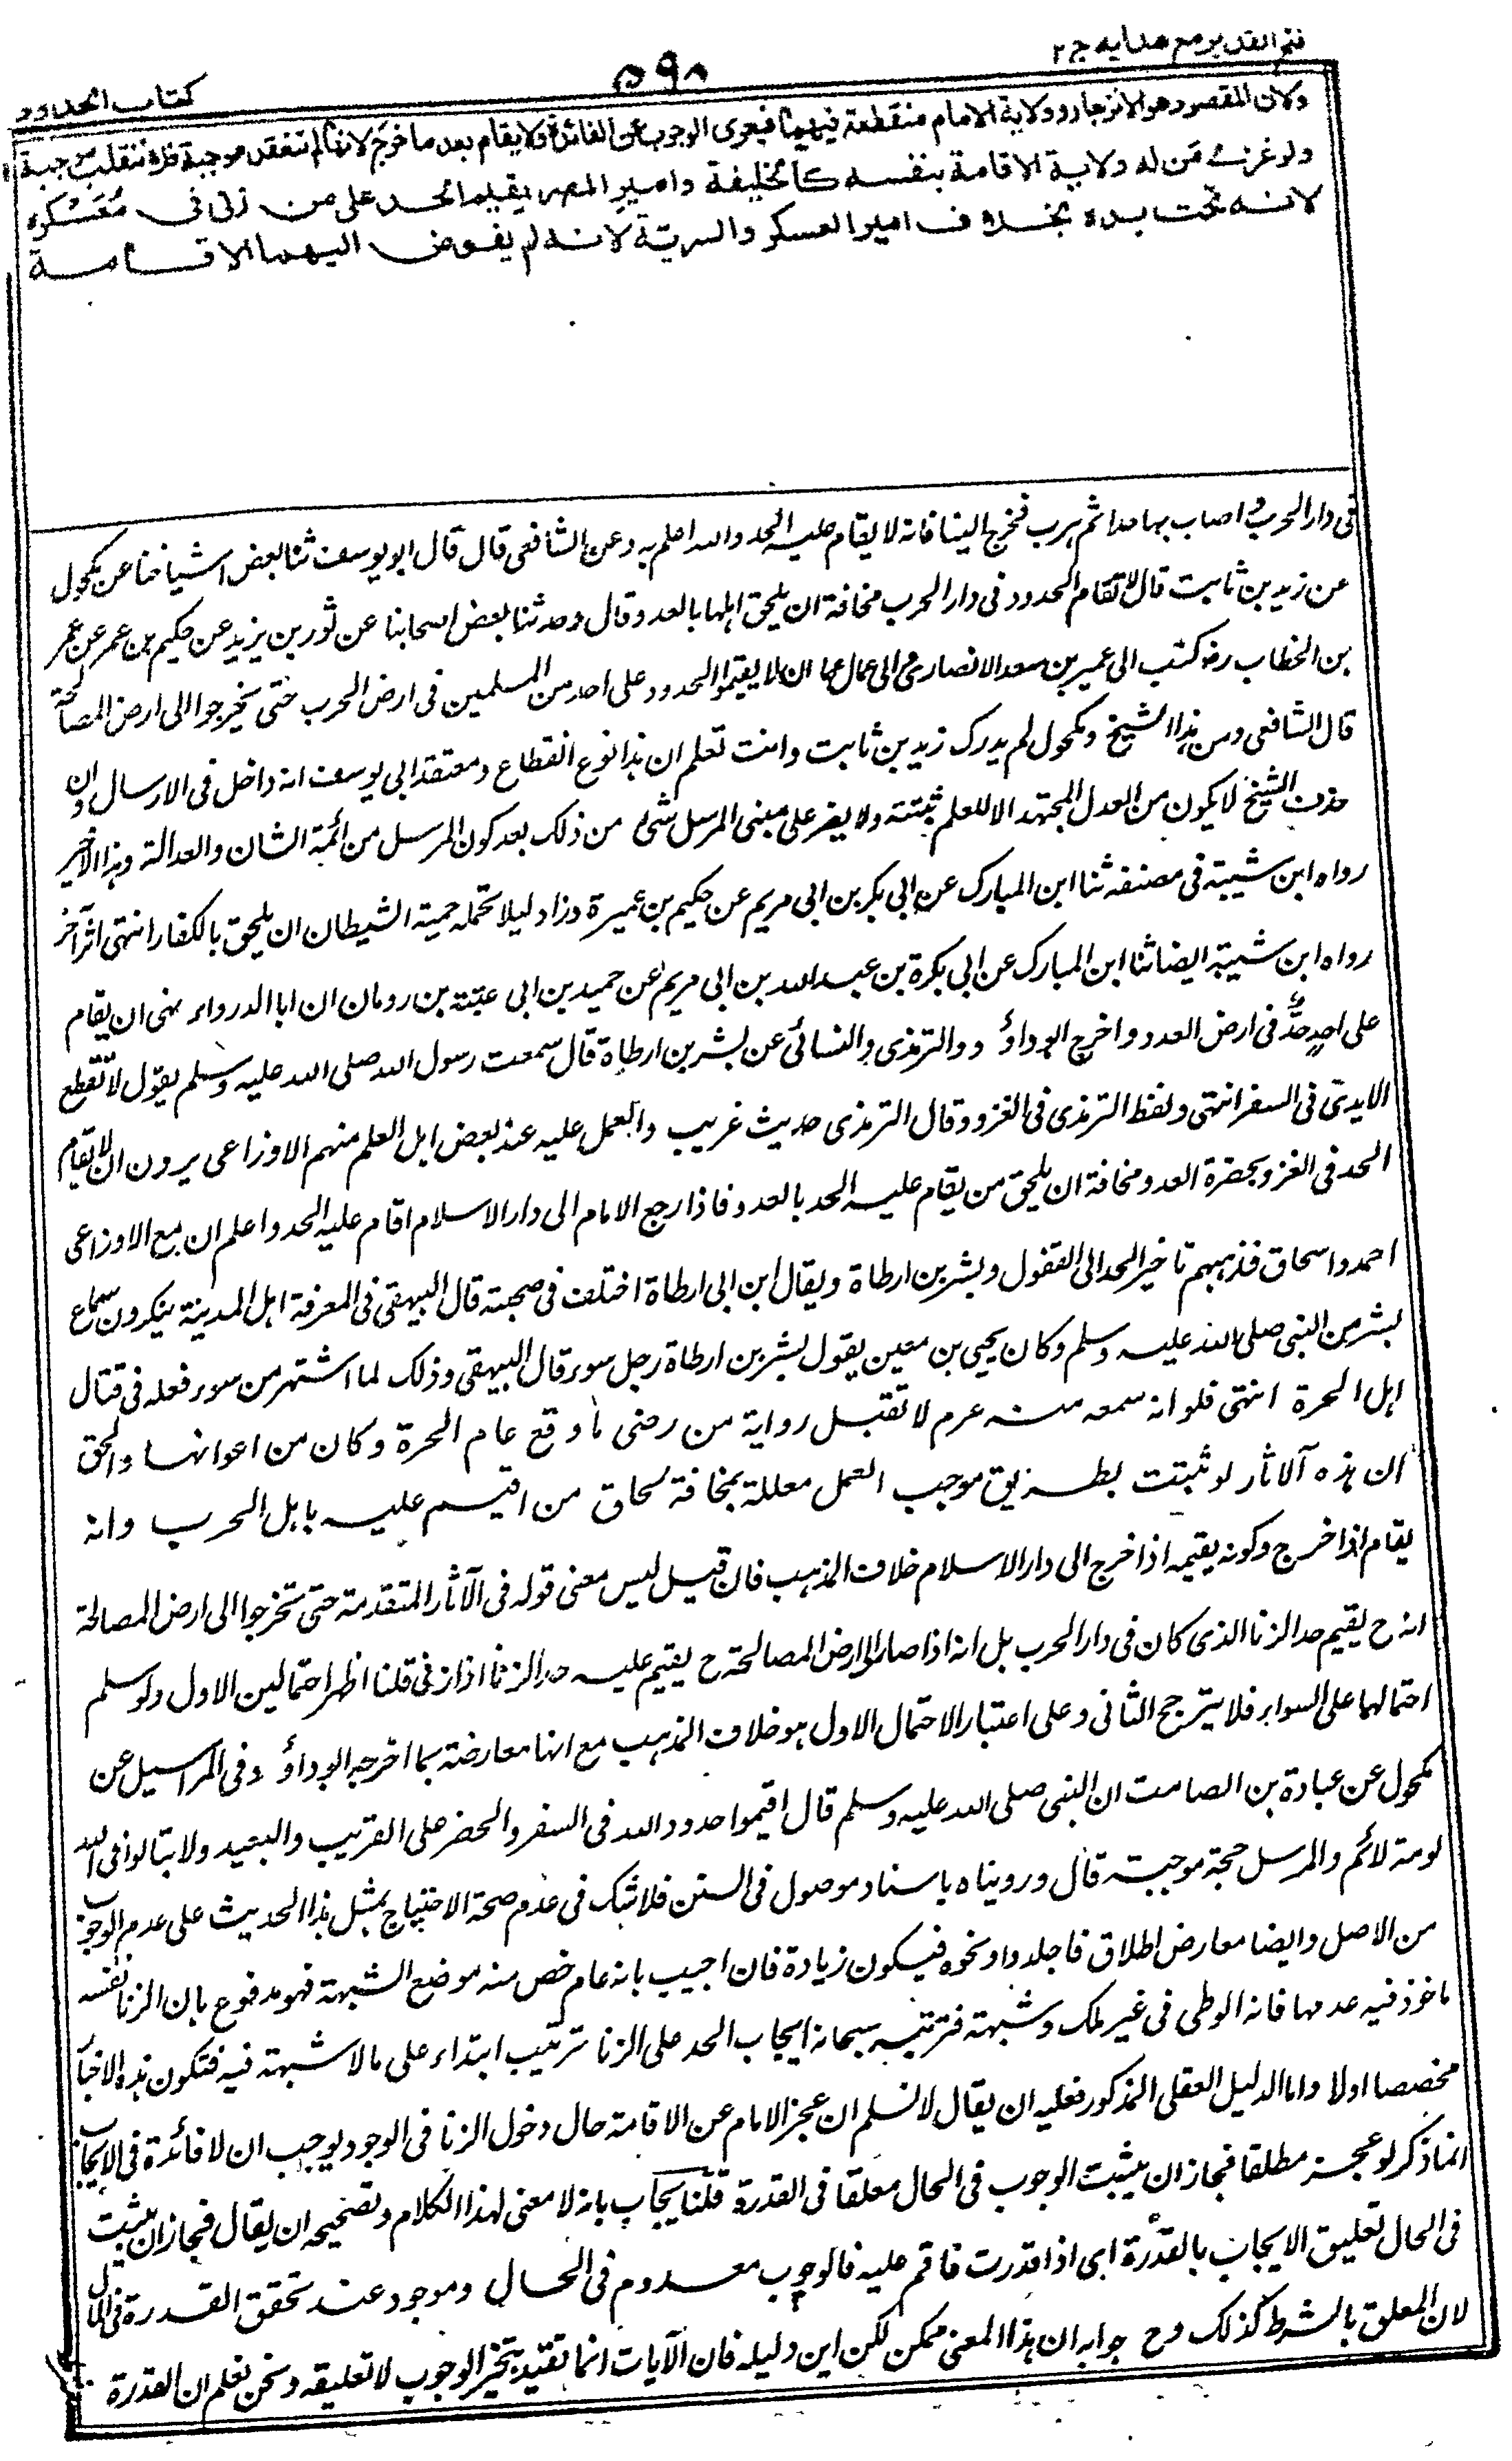 فتح القدير مع هدايه ج٢
٥٩٨
كتاب الحدود
ولان المقصود هو الانزجار وولاية الامام منقطعة فيهما فيعرى الوجوب عن الفائدة ولا يقام بعد ما خرج لانها لم تنعقد موجبة فلا تنقلب موجبة
ولو غزا من له ولاية الاقامة بنفسه كالخليفة وامير المصر يقيم الحد على من زنى فى معسكره
لانه تحت يده بخلاف امير العسكر والسرية لانه لم يفوض اليهما الاقامة
فى دار الحرب و اصاب بها حدا ثم هرب فخرج الينا فانه لا يقام عليه الحد والله اعلم به وعن الشافعى قال قال ابو يوسف ثنا بعض اشياخنا عن مكحول
عن زيد بن ثابت قال لا تقام الحدود فى دار الحرب مخافة ان يلحق اهلها بالعدو قال وحدثنا بعض اصحابنا عن ثور بن يزيد عن حكيم بن عمر عن عمر
بن الخطاب رضه كتب الى عمير بن سعد الانصارى والى عماله ان لا يقيموا الحدود على احد من المسلمين فى ارض الحرب حتى يخرجوا الى ارض المصالحة
قال الشافعى ومن هذا الشيخ ومكحول لم يدرك زيد بن ثابت وانت تعلم ان هذا نوع انقطاع ومعتقد ابى يوسف انه داخل فى الارسال وان
حذف الشيخ لا يكون من العدل المجتهد الا للعلم بثقته ولا يضر على مبنى المرسل شئ من ذلك بعد كون المرسل من ائمة الشان والعدالة وهذا الاخير
رواه ابن شيبة فى مصنفه ثنا ابن المبارك عن ابى بكر بن ابى مريم عن حكيم بن عميرة وزاد ليلا تحمله حمية الشيطان ان يلحق بالكفار انتهى اثر آخر
رواه ابن شيبة ايضا ثنا ابن المبارك عن ابى بكرة بن عبد الله بن ابى مريم عن حميد بن ابى عتبة بن رومان ان ابا الدرداء نهى ان يقام
على احد حد فى ارض العدو واخرج ابو داؤد والترمذى والنسائى عن بشر بن ارطاة قال سمعت رسول الله صلى الله عليه وسلم يقول لا تقطع
الايدى فى السفر انتهى ولفظ الترمذى فى الغزو وقال الترمذى حديث غريب والعمل عليه عند بعض اهل العلم منهم الاوزاعى يرون ان لا يقام
الحد فى الغزو بحضرة العدو مخافة ان يلحق من يقام عليه الحد بالعدو فاذا رجع الامام الى دار الاسلام اقام عليه الحد واعلم ان مع الاوزاعى
احمد واسحاق فمذهبهم تاخير الحد الى القفول وبشر بن ارطاة ويقال ابن ابى ارطاة اختلف فى صحبته قال البيهقى فى المعرفة اهل المدينة ينكرون سماع
بشر من النبى صلى الله عليه وسلم وكان يحيى بن معين يقول بشر بن ارطاة رجل سوء قال البيهقى وذلك لما اشتهر من سوء فعله فى قتال
اهل الحرة انتهى فلو انه سمعه منه عرم لا تقبل رواية من رضى ما وقع عام الحرة وكان من اعوانها والحق
ان هذه الآثار لو ثبتت بطريق موجب العمل معللة بمخافة لحاق من اقيم عليه باهل الحرب وانه
يقام اذا خرج وكونه يقيمه اذا خرج الى دار الاسلام خلاف المذهب فان قيل ليس معنى قوله فى الآثار المتقدمة حتى تخرجوا الى ارض المصالحة
انه ح يقيم حد الزنا الذى كان فى دار الحرب بل انه اذا صار الى ارض المصالحة ح يقيم عليه حد الزنا اذا زنى قلنا اظهر احتمالين الاول ولو سلم
احتمالهما على السواء فلا يترجح الثانى وعلى اعتبار الاحتمال الاول هو خلاف المذهب مع انها معارضة بما اخرجه ابو داؤد فى المراسيل عن
مكحول عن عبادة بن الصامت ان النبى صلى الله عليه وسلم قال اقيموا حدود الله فى السفر والحضر على القريب والبعيد ولا تبالوا فى الله
لومة لائم والمرسل حجة موجبة قال ورويناه باسناد موصول فى السنن فلا شك فى عدم صحة الاحتجاج بمثل هذا الحديث على عدم الوجوب
من الاصل وايضا معارض اطلاق فاجلدوا ونحوه فيكون زيادة فان اجيب بانه عام خص منه موضع الشبهة فهو مدفوع بان الزنا نفسه
ماخوذ فيه عدمها فانه الوطى فى غير ملك وشبهته فترتيبه سبحانه ايجاب الحد على الزنا ترتيب ابتداء على ما لا شبهة فيه فتكون هذه الاخبار
مخصصا اولا واما الدليل العقلى المذكور فعليه ان يقال لا نسلم ان عجز الامام عن الاقامة حال دخول الزنا فى الوجود يوجب ان لا فائدة فى الايجاب
انما ذكر لو عجز مطلقا فجاز ان يثبت الوجوب فى الحال معلقا فى القدرة قلنا يجاب بانه لا معنى لهذا الكلام وتصحيحه ان يقال فجاز ان يثبت
فى الحال تعليق الايجاب بالقدرة اى اذا قدرت فاقم عليه فالوجوب معدوم فى الحال وموجود عند تحقق القدرة فى المآل
لان المعلق بالشرط كذلك وح جوابه ان هذا المعنى ممكن لكن اين دليله فان الآيات انما تفيد تنجيز الوجوب لا تعليقه ونحن نعلم ان القدرة